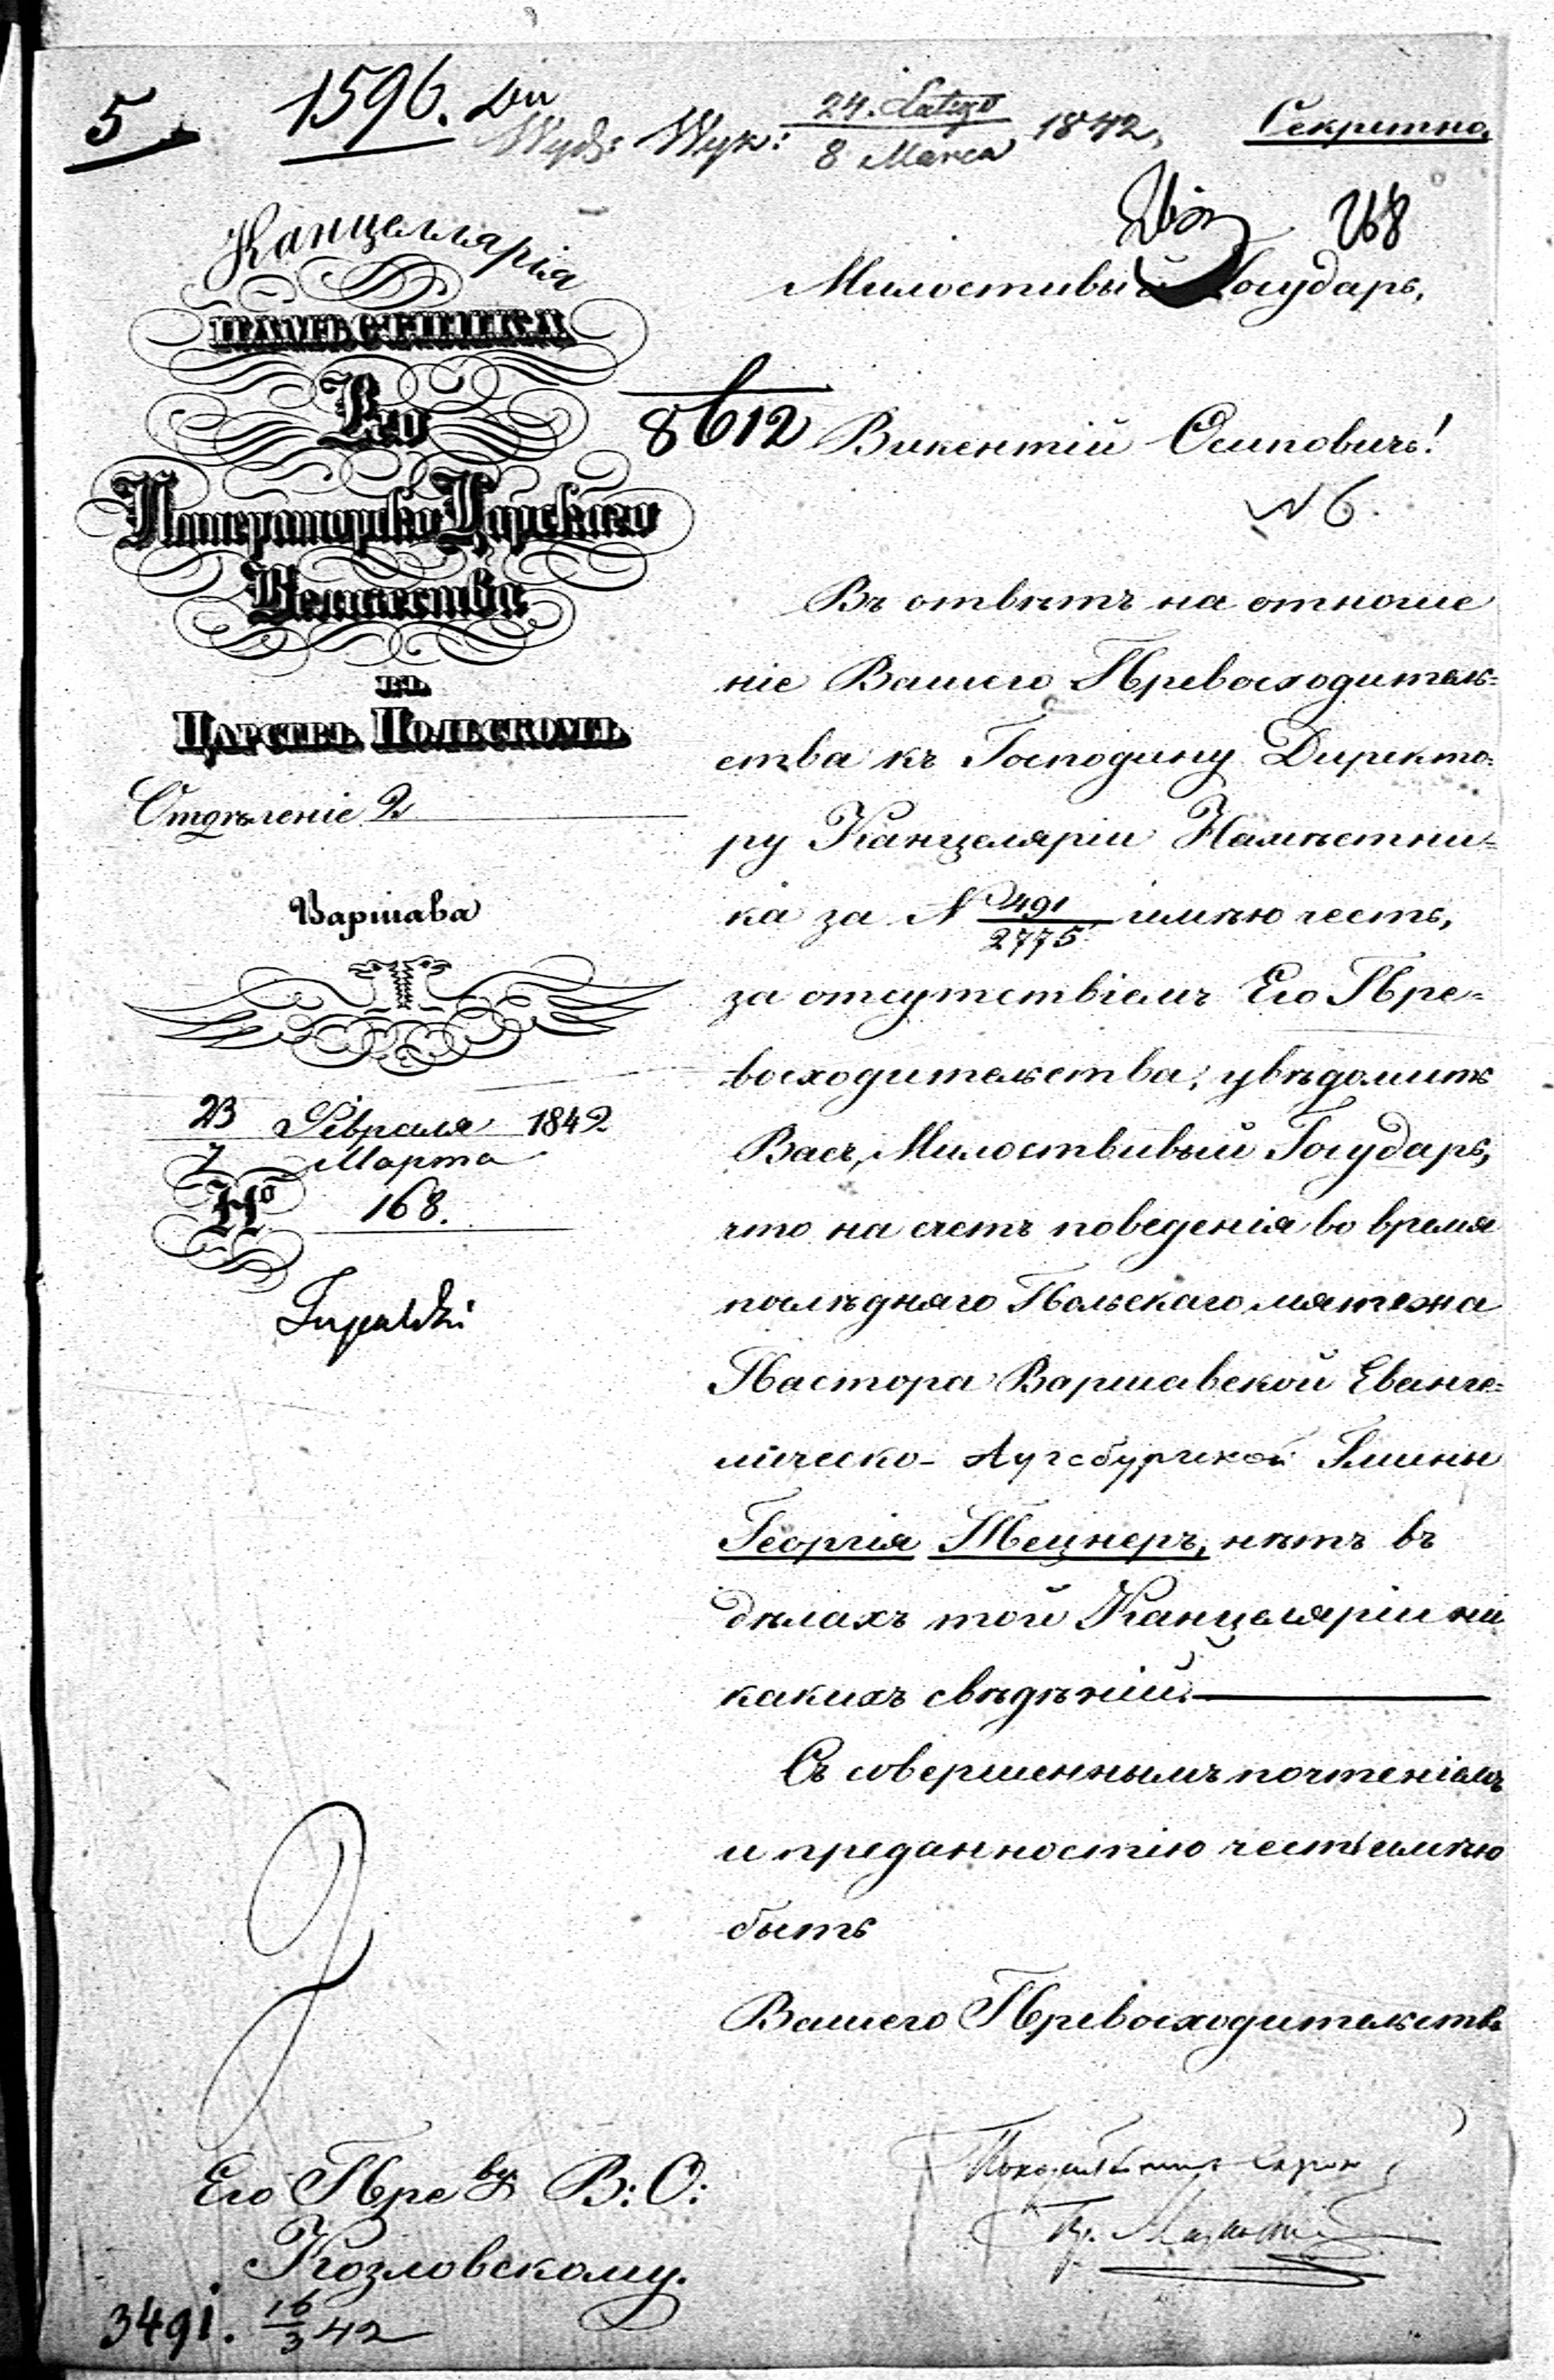 5
1596.
Wydz: Wyk: 24. Lutego / 8 Marca 1842,
Секретно.
768
Канцеллярія
НАМѢСТНИКА
Его
Императорско Царскаго
Величества
ВЪ
ЦАРСТВѢ ПОЛЬСКОМЪ
Отдѣленіе 2
Варшава
23 Февраля 1842
7 Марта
№ 168.
Милостивый Государь,
8612
Викентій Осиповичъ!
N 6.
Въ отвѣтъ на отноше
ніе Вашего Превосходитель=
ства къ Господину Директо=
ру Канцеляріи Намѣстни=
ка за № 2491/2775 имѣю честь,
за отсутствіемъ Его Пре=
восходительства, увѣдомить
Васъ, Милоствивый Государь,
что на счетъ поведенія во время
послѣдняго Польскаго мятежа
Пастора Варшавской Еванге=
лическо-Аугсбургской Гмины
Георгія Тецнеръ, нѣтъ въ
дѣлахъ той Канцеляріи ни
какихъ свѣдѣній.
Съ совершеннымъ почтеніемъ
и преданностію честь имѣю
быть
Вашего Превосходительства
Его Пре ву В: О:
Козловскому.
3491. 16/3 42